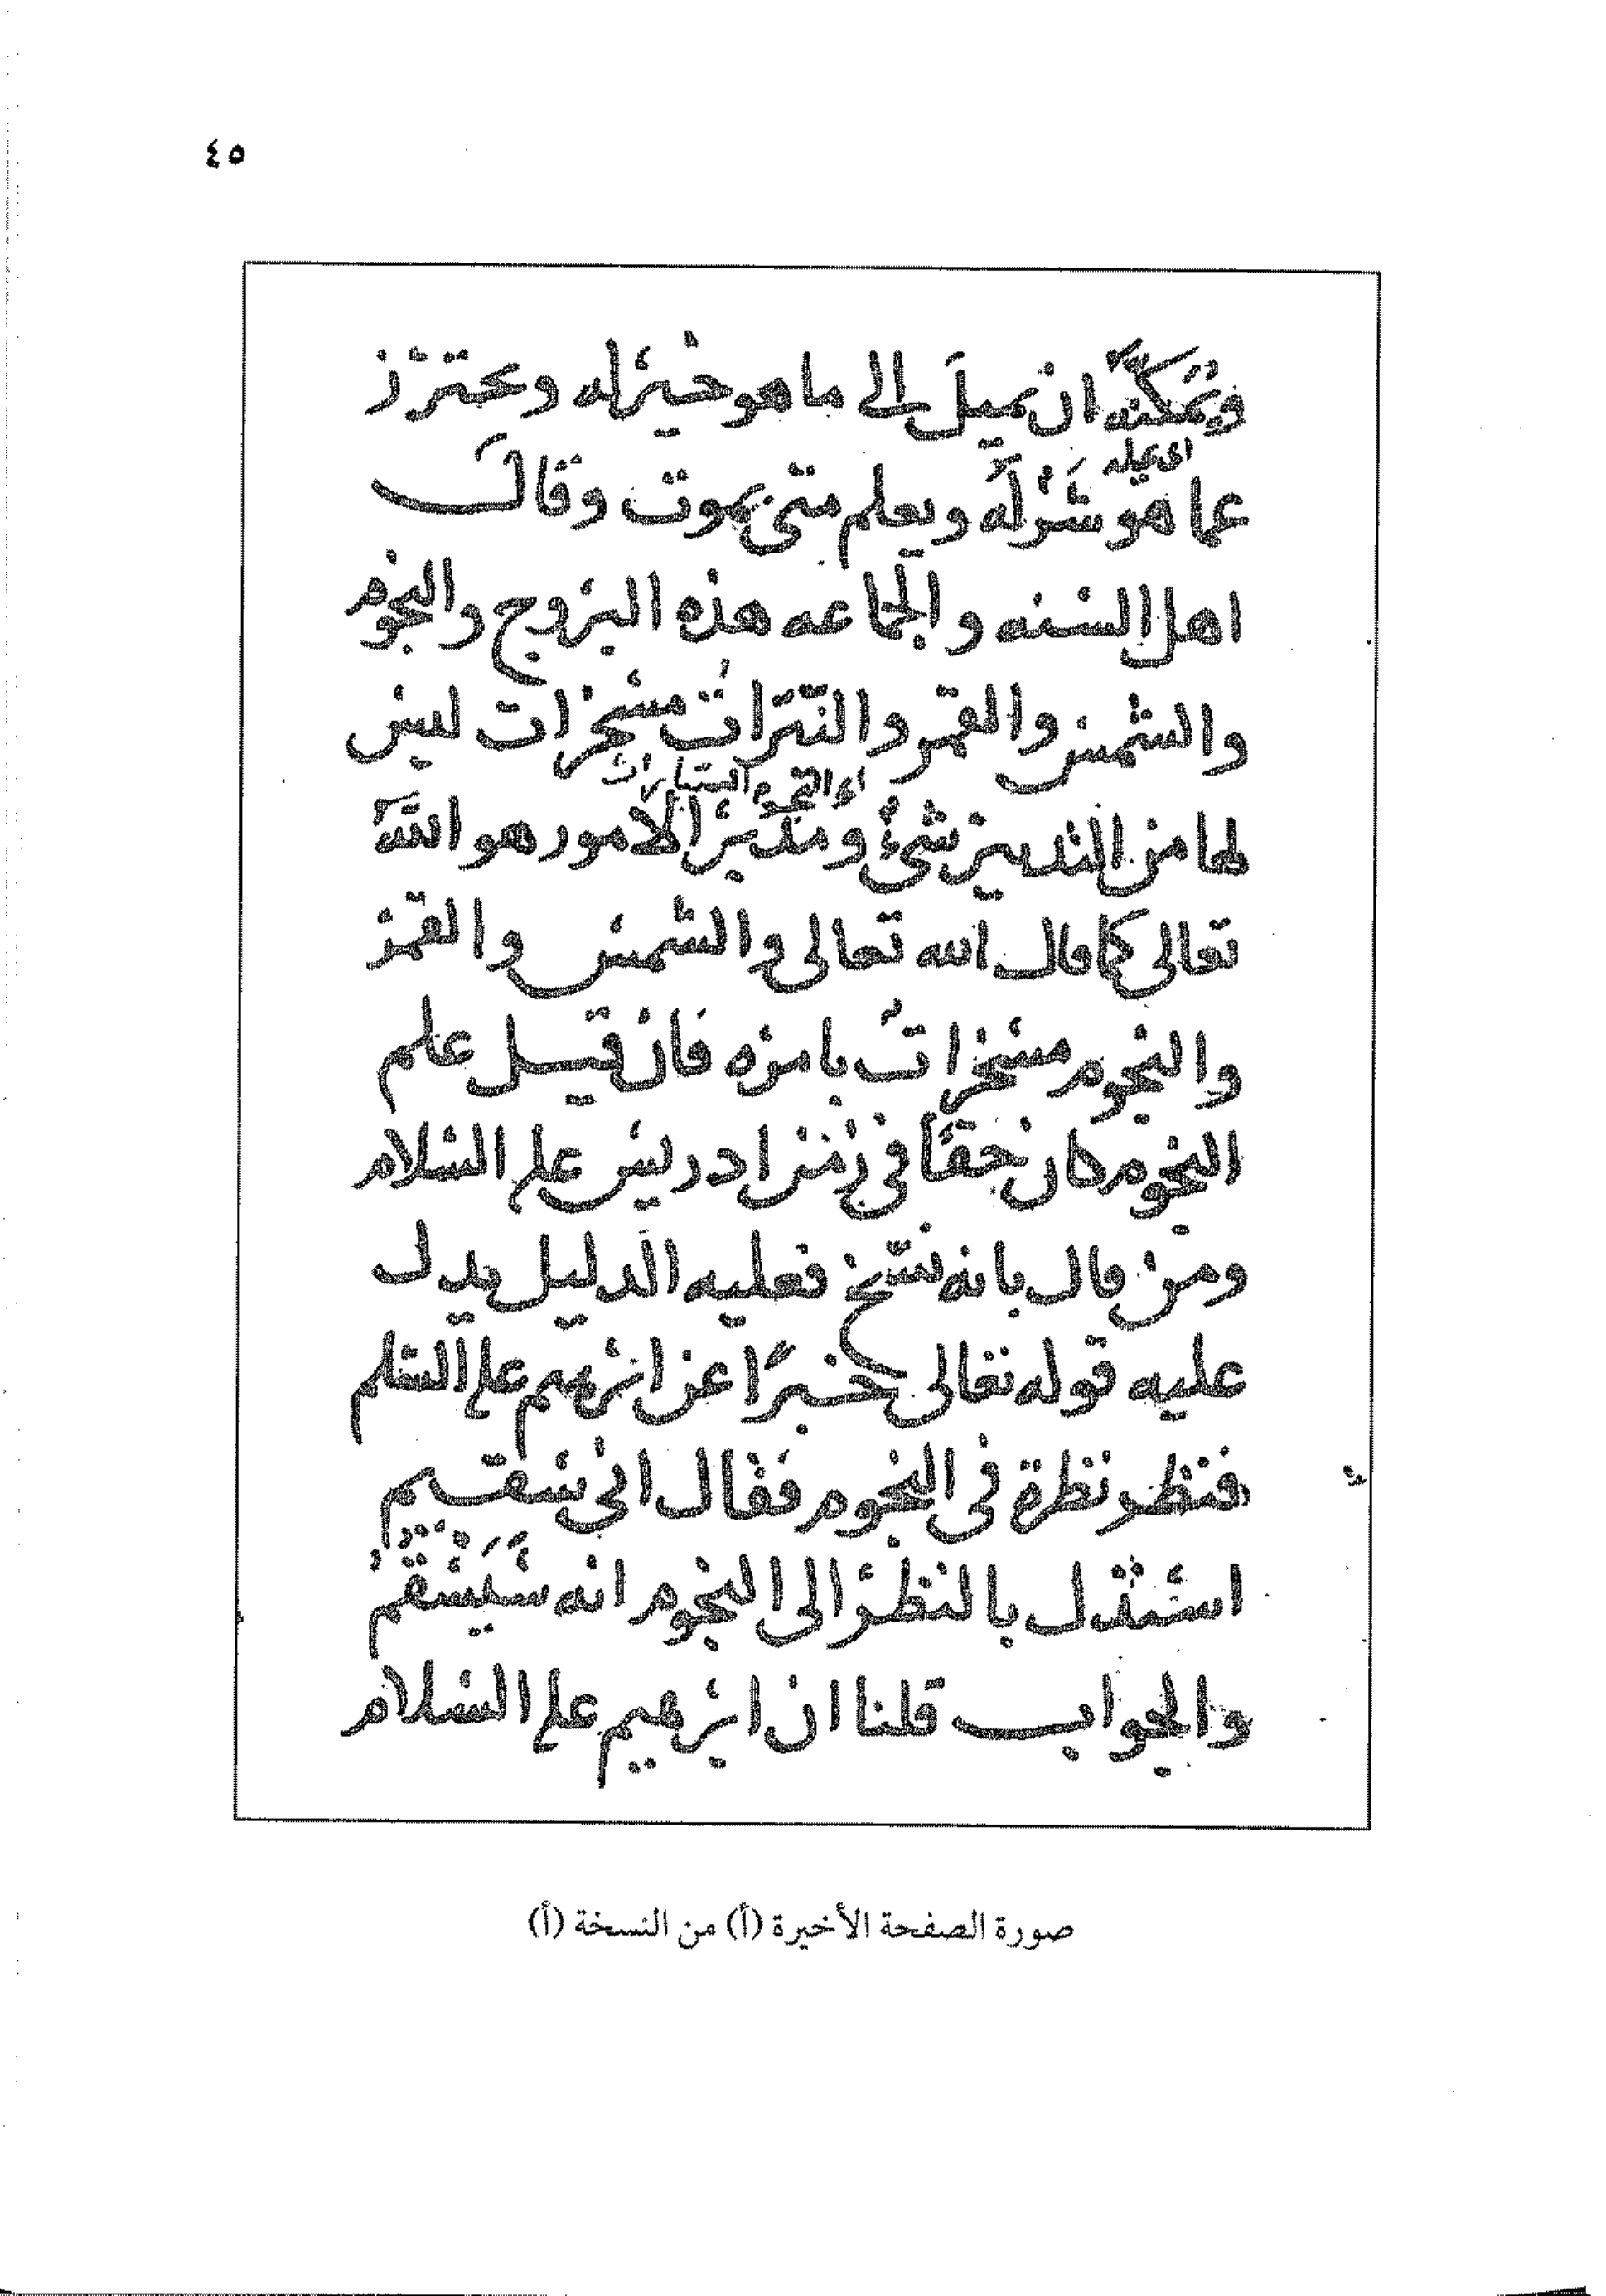 ٤٥
ويمكنه ان يميل الى ما هو خير له ويحترز
عما هو شر له ويعلم متى يموت وقال
اهل السنه والجماعه هذه البروج والنجوم
والشمس والقمر والنيرات مسخرات ليس
اي النجوم السيارات
لها من التدبير شيء ومدبر الامور هو الله
تعالى كما قال الله تعالى والشمس والقمر
والنجوم مسخرات بامره فان قيل علم
النجوم كان حقا في زمن ادريس علم السلام
ومن قال بانه نسخ فعليه الدليل يدل
عليه قوله تعالى خبرًا عن ابرهيم علم السلم
فنظر نظرة في النجوم فقال اني سقيم
استدل بالنظر الى النجوم انه سيسقم
والجواب قلنا ان ابرهيم علم السلام
صورة الصفحة الأخيرة (أ) من النسخة (أ)